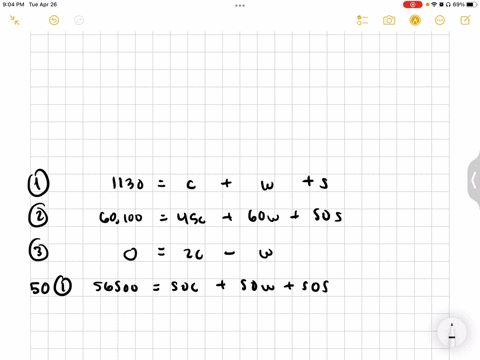 9:04 PM Tue Apr 26
69%
① 1130 = c + w + s
② 60,100 = 45c + 60w + 50s
③ 0 = 2c - w
50 ① 56500 = 50c + 50w + 50s